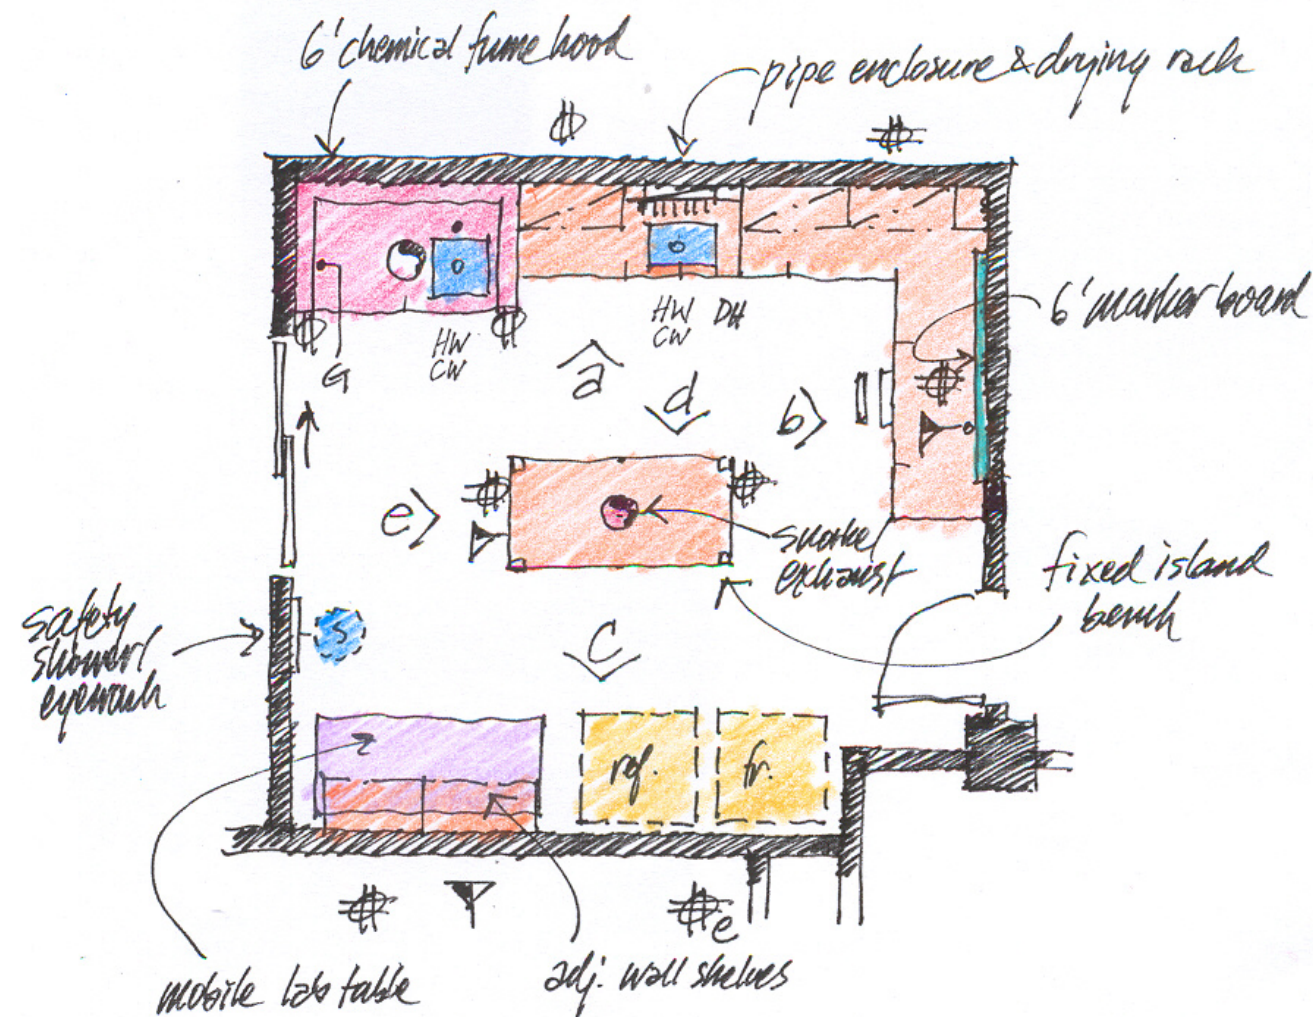 6' chemical fume hood
pipe enclosure & drying rack
HW
CW
G
HW
CW
DH
a
d
b
6' marker board
e
snorkel
exhaust
fixed island
bench
safety
shower/
eyewash
S
c
ref.
fr.
e
mobile lab table
adj. wall shelves